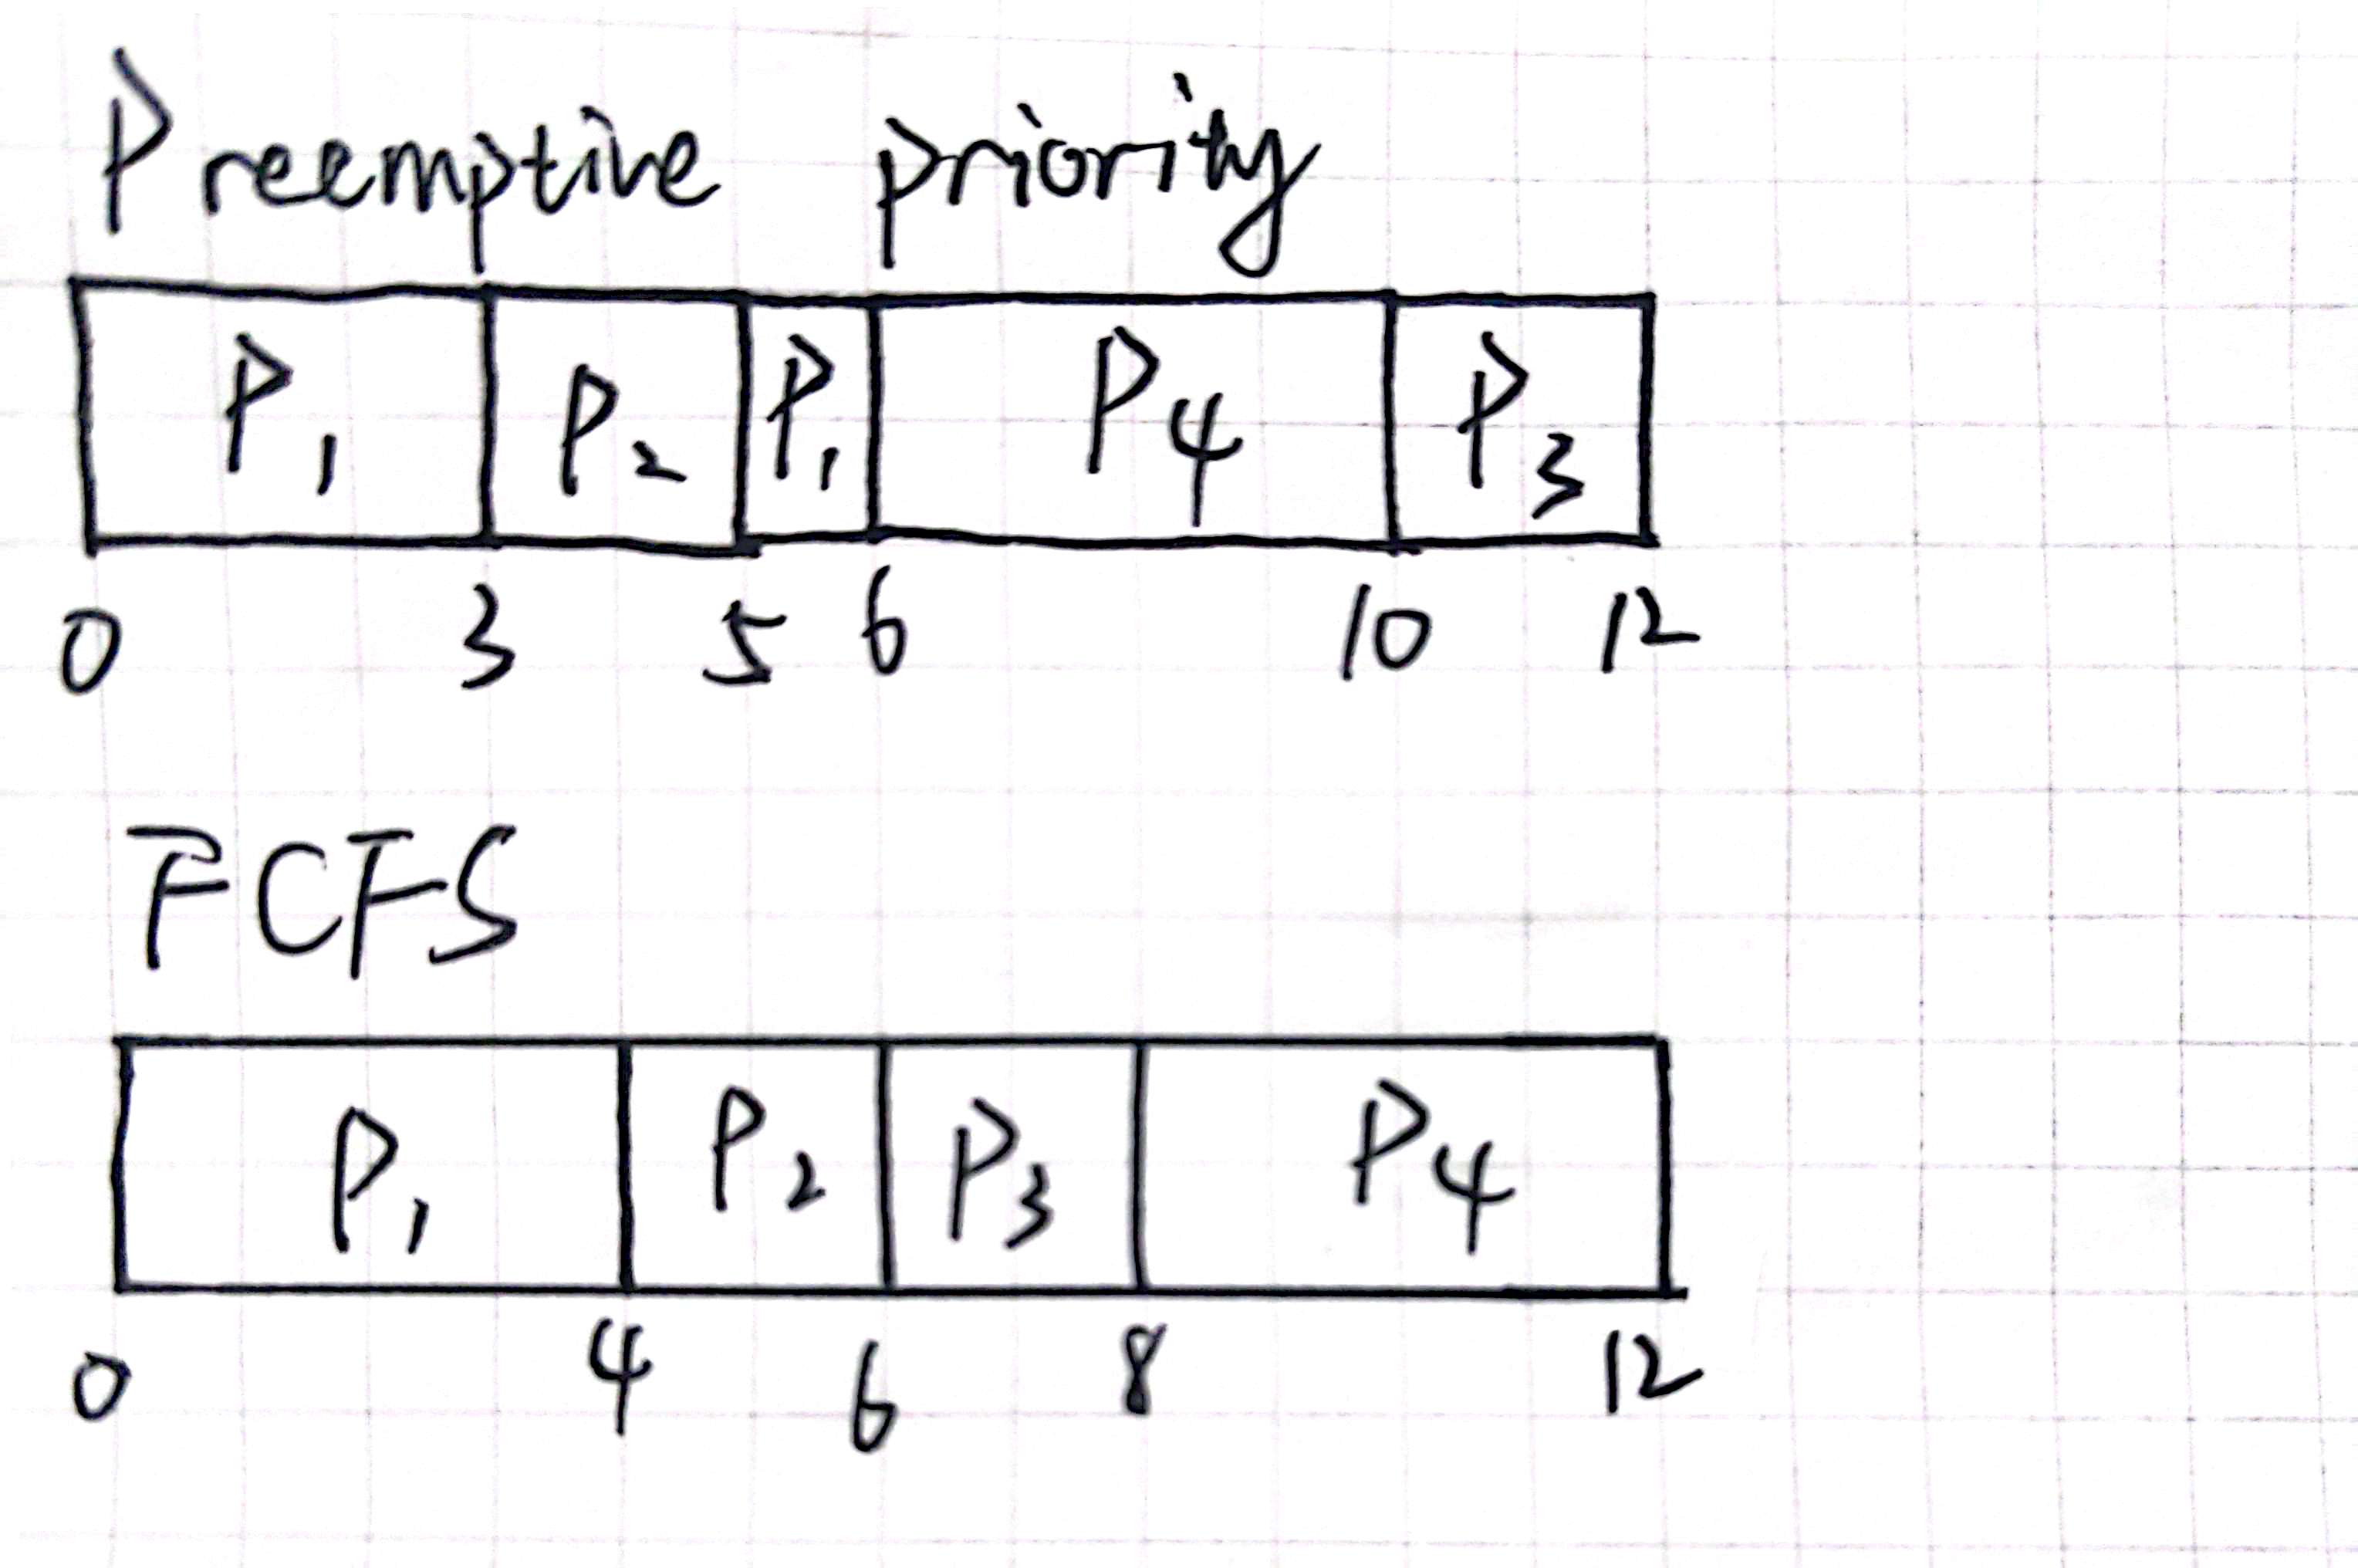 Preemptive priority
P₁ P₂ P₁ P₄ P₃
0 3 5 6 10 12
FCFS
P₁ P₂ P₃ P₄
0 4 6 8 12